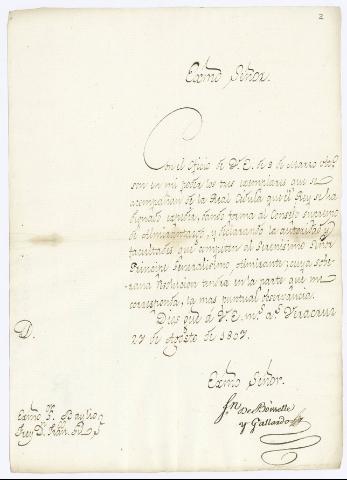 2
Exmô Señor.
Con el Oficio de V.E. de 3 de Marzo
son en mi poder los tres exemplares que se
acompañan de la Real Cédula que el Rey se ha
dignado expedir, dando forma al Consejo supremo
de Almirantazgo, y declarando la autoridad y
facultades que competen al Serenisimo Señor
Principe Generalisimo, Almirante; cuya sobe-
rana Resolucion tendra en la parte que me
corresponda, la mas puntual observancia.
Dios gue á V.E. ms. as. Veracruz
27 de Agosto de 1807.
Exmô Señor.
De Bonelle
y Gallardo
D.
Exmô Sr. Baylio
Frey Dn. Fran.